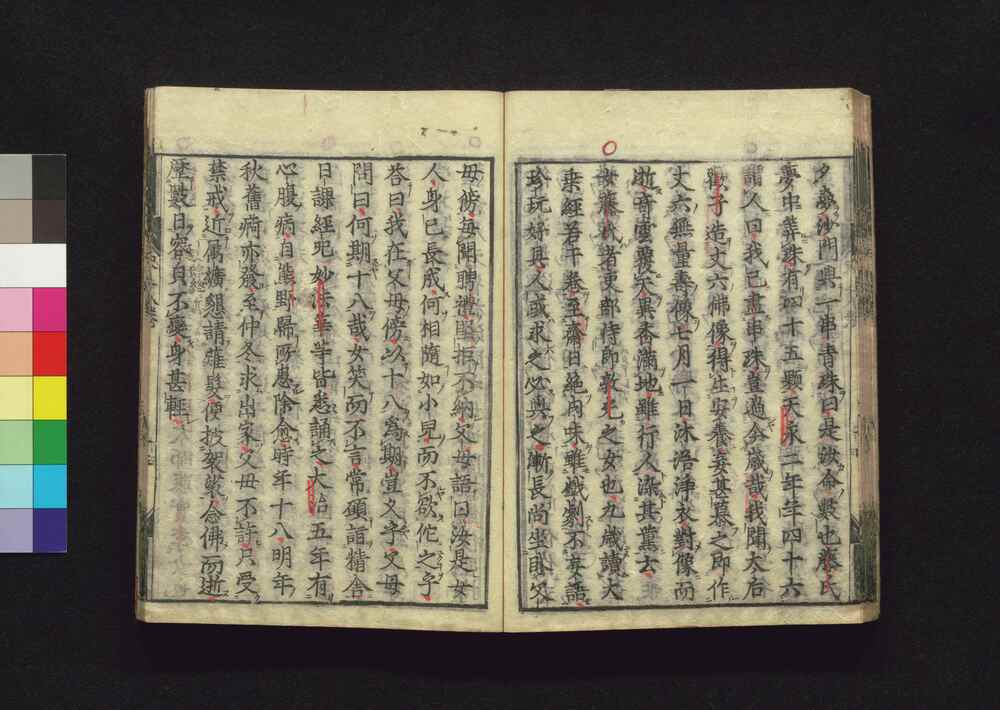 夕夢沙門與一串青珠曰是汝侖數也藤氏
夢中筭珠有四十五顆天永二年年四十六
謂人曰我已盡串珠豈過今歲哉我聞太后
歡子造丈六佛像得生安養妾甚慕之即作
丈六無量壽像七月一日沐浴淨衣對像而
逝音雲覆天異香滿地雖行人染其薰云
女藤氏者吏部侍郎敦光之女也九歲讀大
乘經若干卷至齋日絕肉味雖戲劇不妄語
珍玩好具人或求之必與之漸長尚坐臥父
母傍每聞聘禮堅拒不納父母語曰汝是女
人身已長成何相隨如小兒而不欲佗之乎
答曰我在父母傍以十八為期豈久乎父母
問曰何期十八哉女笑而不言常願詣精舍
日課經咒妙法華等皆悉誦之大治五年有
心腹病自熊野歸所患除愈時年十八明年
秋舊痾亦發至仲冬求出家父母不許只受
禁戒近屬孀懇請薙髮便披袈裟念佛而逝
歷數日容貝不變身甚輕